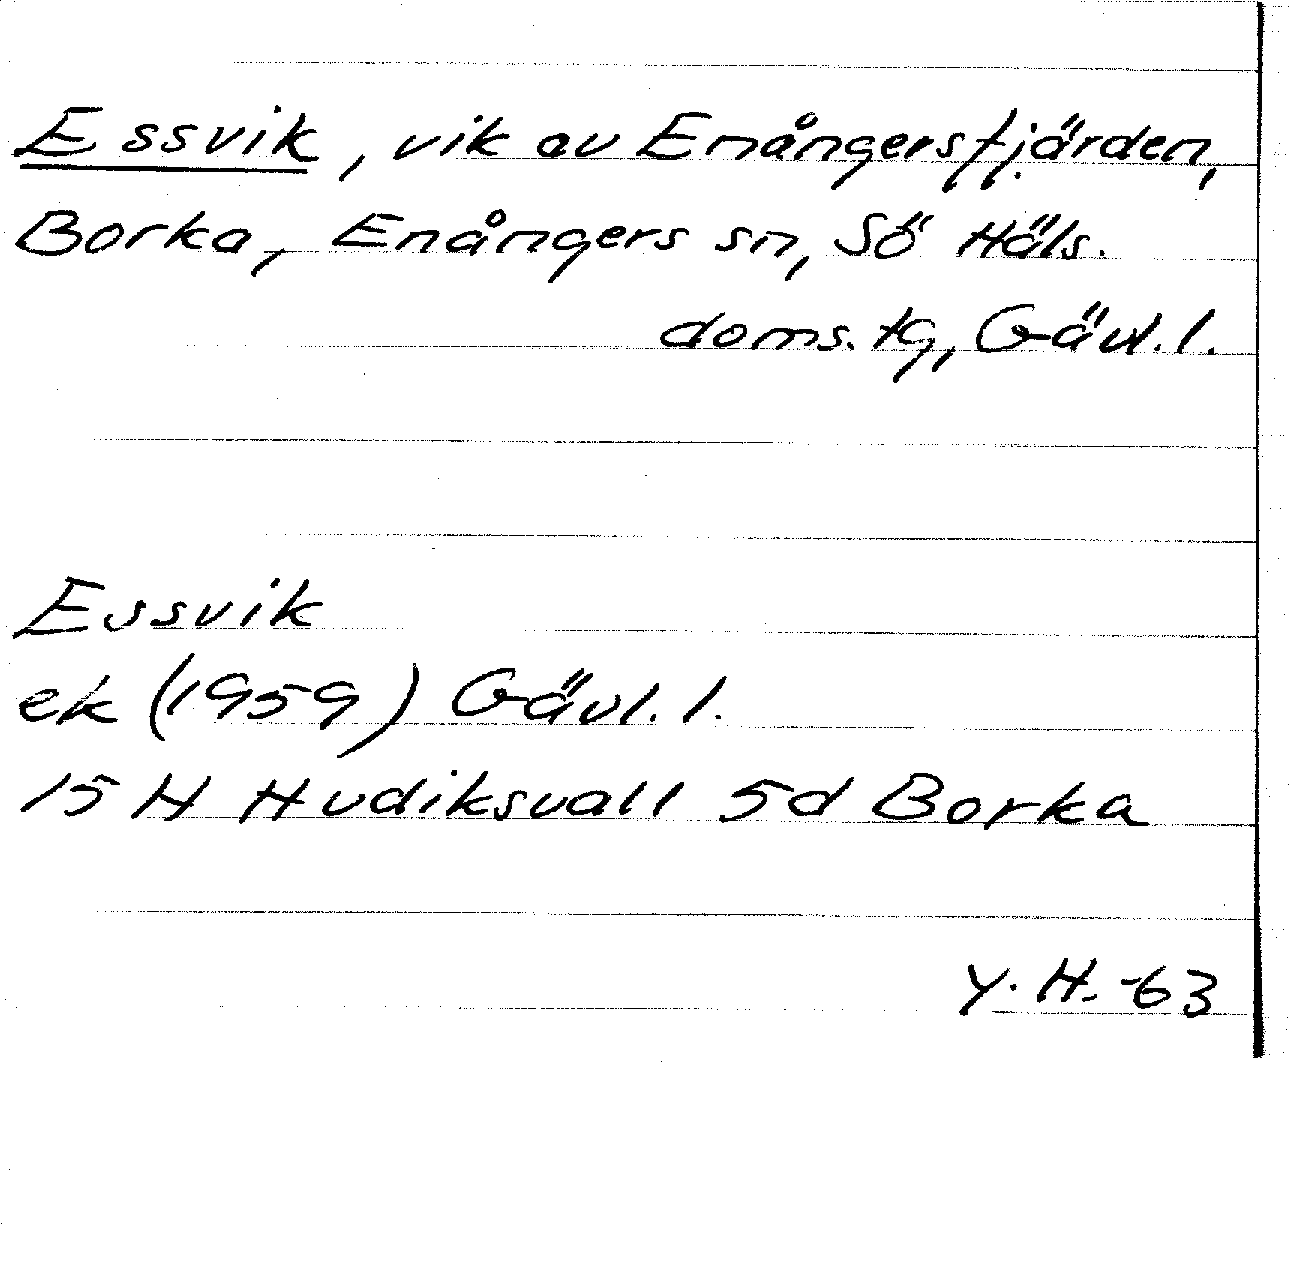 Essvik, vik av Enångersfjärden,
Borka, Enångers sn, Sö Häls.
doms. tg, Gävl. l.
Essvik
ek (1959) Gävl. l.
15 H Hudiksvall 5d Borka
Y. H. -63